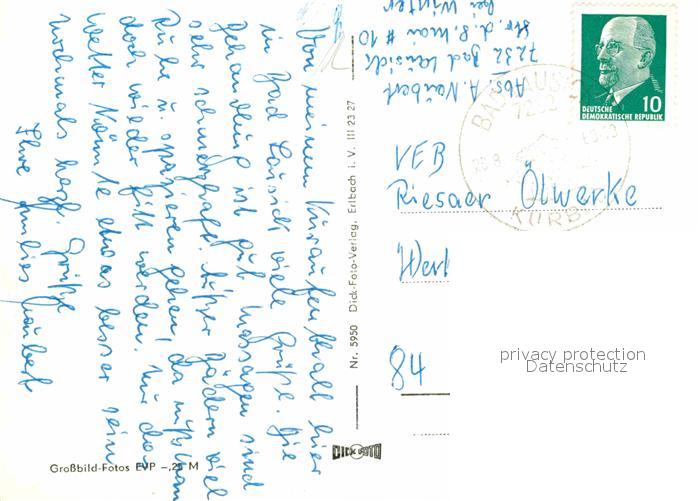 Von meinem Kuraufenthalt hier
in Bad Lausick viele Grüße. Die
Behandlung ist gut, Massagen sind
sehr schmerzhaft. Außer Bädern viel
Ruhe u. spazieren gehen, da muß man
doch wieder fitt werden! Nur das
Wetter könnte etwas besser sein
Nochmals herzl. Grüße
Ihre Naubert
Großbild-Fotos EVP –,25 M
Nr. 5950 Dick-Foto-Verlag, Erlbach i. V. III 23 27
DICK FOTO
Abs. A. Naubert
7232 Bad Lausick
Str. d. 8. Mai # 10
bei Winter
DEUTSCHE
DEMOKRATISCHE REPUBLIK
10
BAD LAUSICK
7232
VEB
Riesaer Ölwerke
Werl
84
privacy protection
Datenschutz